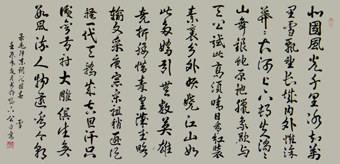 北國風光千里冰封萬
里雪飄望長城内外惟餘
莽莽大河上下頓失滔滔
山舞銀蛇原馳蠟象欲與
天公試比高須晴日看紅裝
素裹分外妖嬈江山如
此多嬌引無數英雄
競折腰惜秦皇漢武略
輸文采唐宗宋祖稍遜風
騷一代天驕成吉思汗只
識彎弓射大雕俱往矣
數風流人物還看今朝
毛澤東詞沁園春 雪